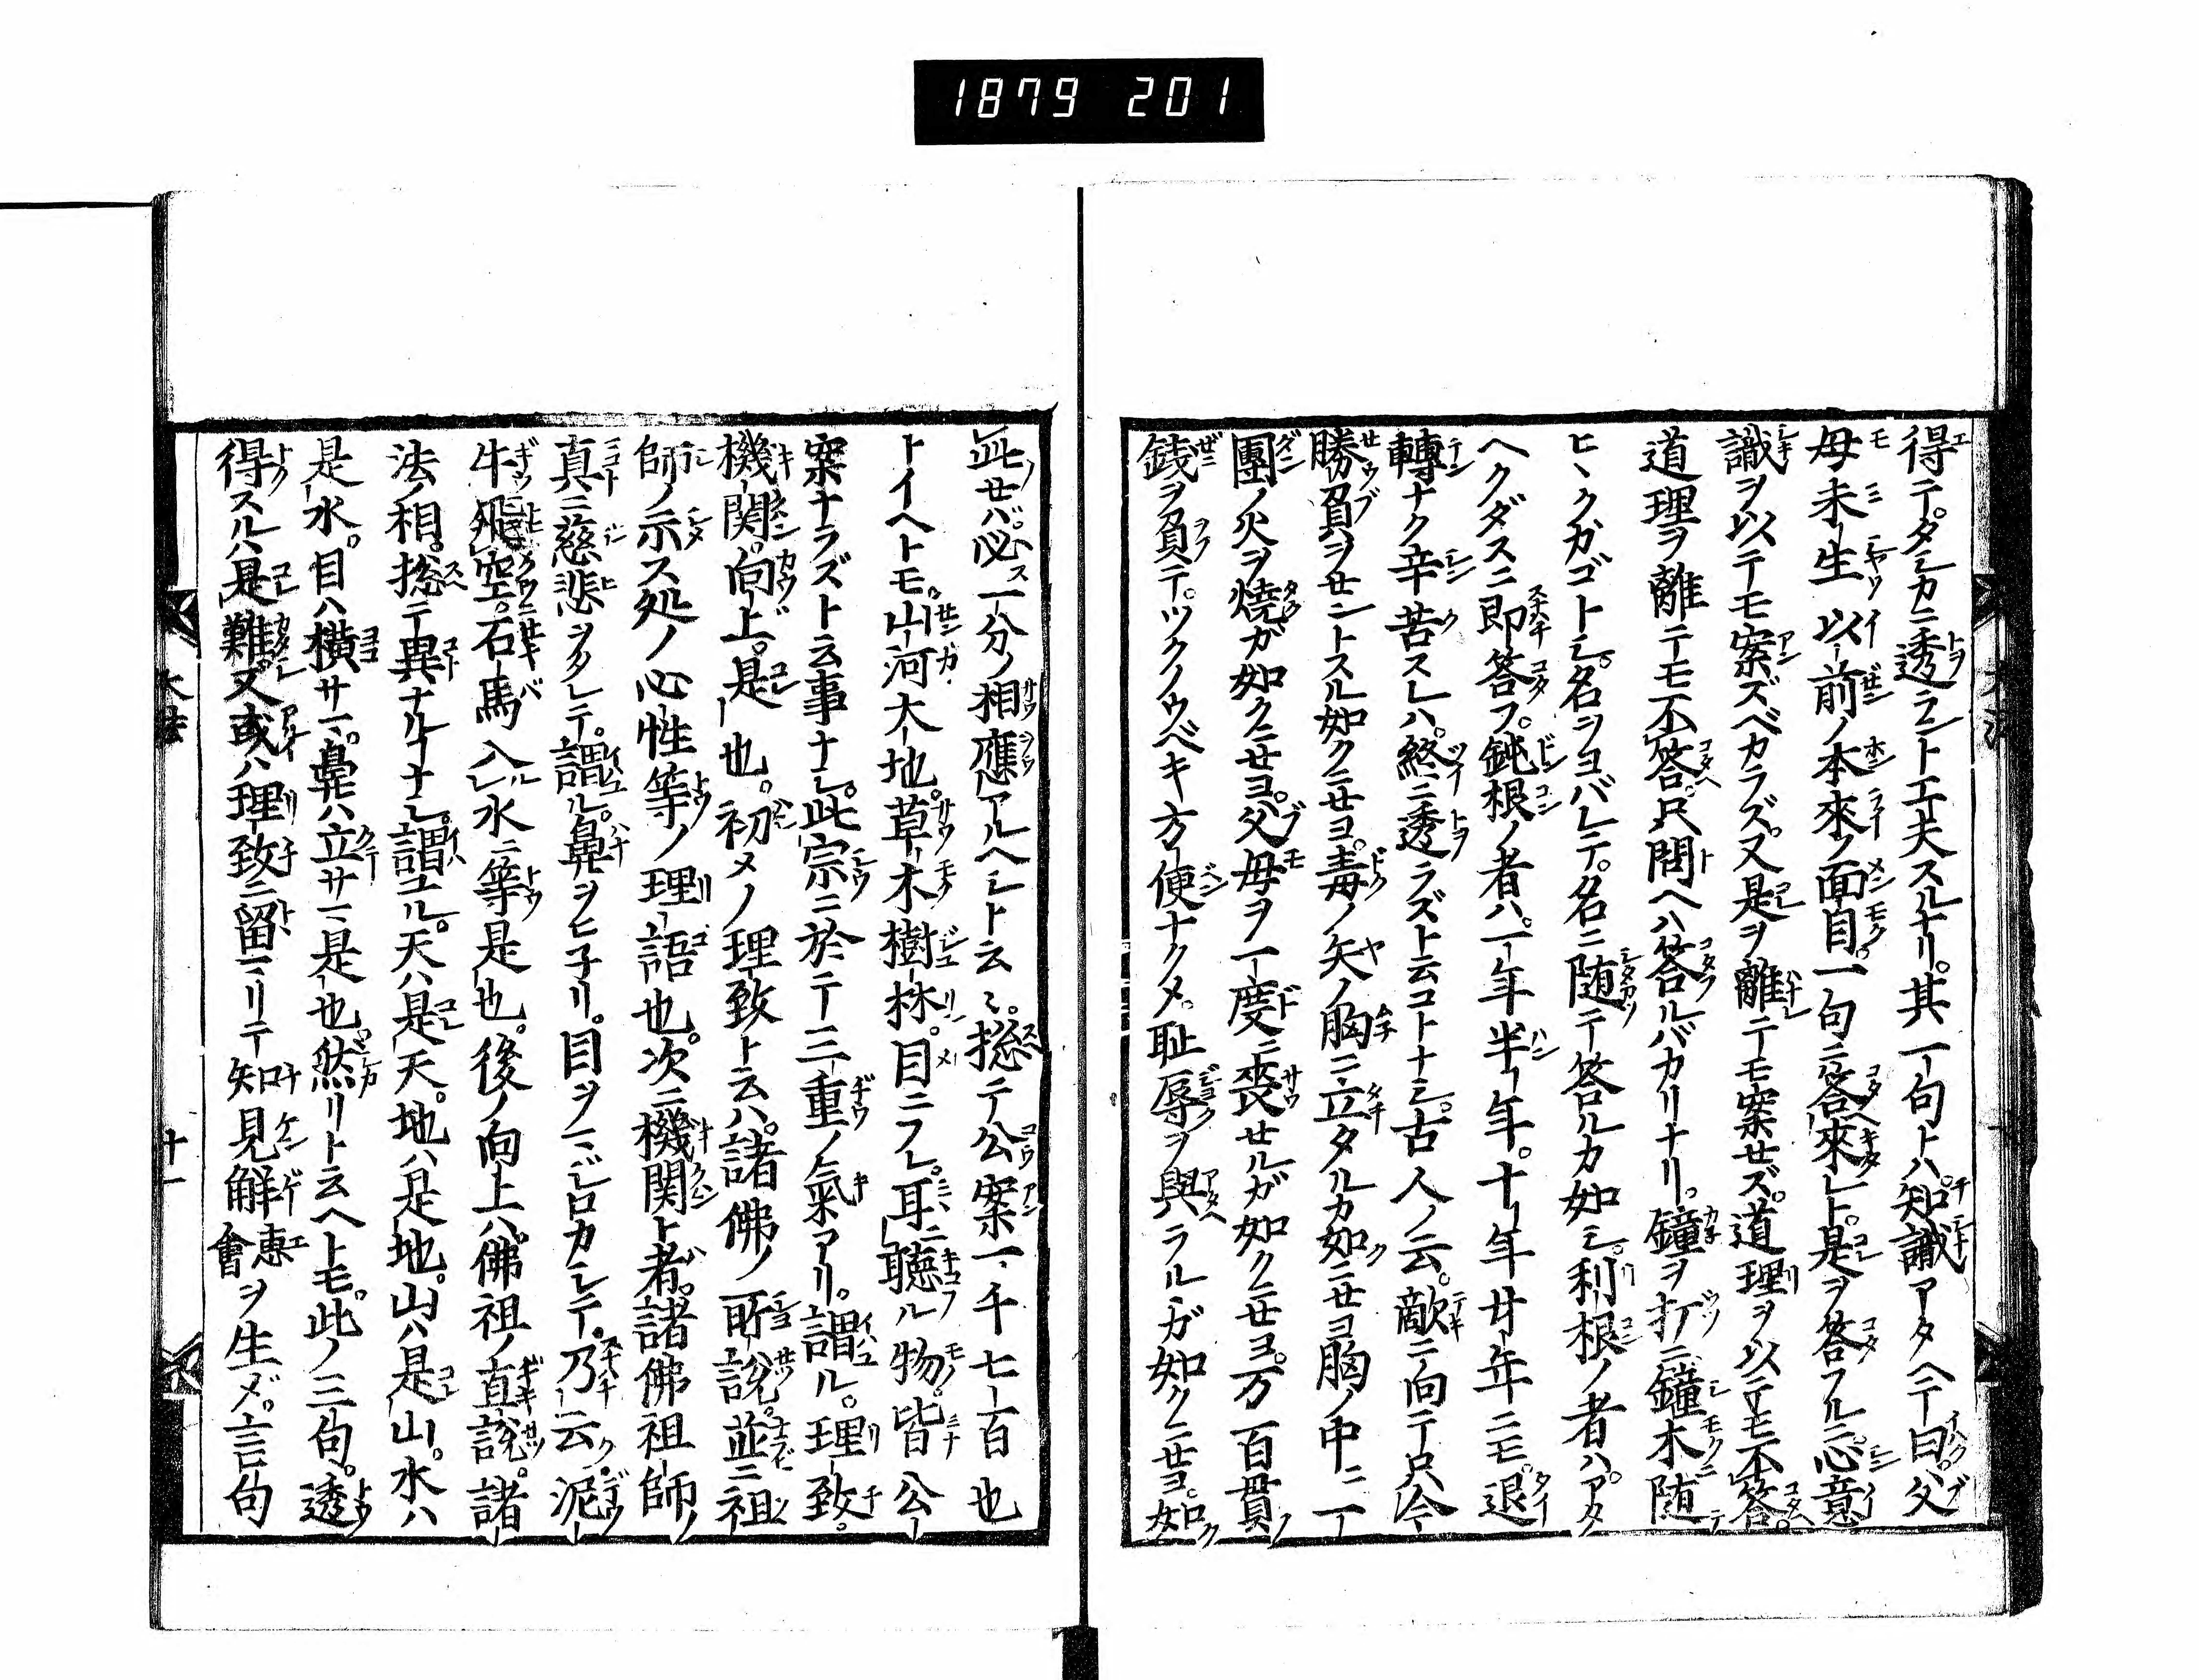 1879 201
得テ。タシカニ透ラント工夫スルナリ。其一句トハ。知識アタヘテ曰。父
母未生以前ノ本來ノ面目。一句ニ答來レト。是ヲ答フルニ。心意
識ヲ以テモ案ズベカラズ。又是ヲ離テモ案セズ。道理ヲ以テモ不答。
道理ヲ離テモ不答。只問ヘハ答ルバカリナリ。鐘ヲ打ニ鐘木ニ随テ
ヒヽクガゴトシ。名ヲヨバレテ。名ニ随テ答ルカ如シ。利根ノ者ハ。アタ
ヘクダスニ即答フ。鈍根ノ者ハ。一年半年。十年廿年ニモ。退
轉ナク辛苦スレハ。終ニ透ラズト云コトナシ。古人ノ云。敵ニ向テ只今
勝負ヲセントスル如クニセヨ。毒ノ矢ノ胸ニ立タルカ如クニセヨ胸ノ中ニ一
團ノ火ヲ燒ガ如クニセヨ。父母ヲ一度ニ喪セルガ如クニセヨ。万百貫ノ
銭ヲ負テ。ツクノウベキ方便ナクメ。恥辱ヲ與ラルヽガ如クニセヨ。如ク
此セバ。必ス一分ノ相應アルヘシト云〻。捴テ公案一千七百也
トイヘトモ。山河大地。草木樹林。目ニフレ。耳ニ聴ル物。皆公
案ナラズト云事ナシ。此宗ニ於テ三重ノ氣アリ。謂ル。理致。
機関。向上。是也。初メノ理致ト云ハ。諸佛ノ所説。並ニ祖
師ノ示ス処ノ心性等ノ理語也。次ニ機関ト者。諸佛祖師ノ
真ニ慈悲ヲタレテ。謂ル。鼻ヲヒ子リ。目ヲマジロカシテ。乃云ク。泥
牛飛空。石馬入ル水ニ等是也。後ノ向上ハ。佛祖ノ直説。諸
法ノ相。捴テ異ナル丁ナシ。謂ユル。天ハ是天。地ハ是地。山ハ是山。水ハ
是水。目ハ横サマ。鼻ハ立サマ是也。然リト云ヘトモ。此ノ三句。透
得スルハ是難。又或ハ理致ニ留マリテ知見解會惠ヲ生メ。言句
大法
十一